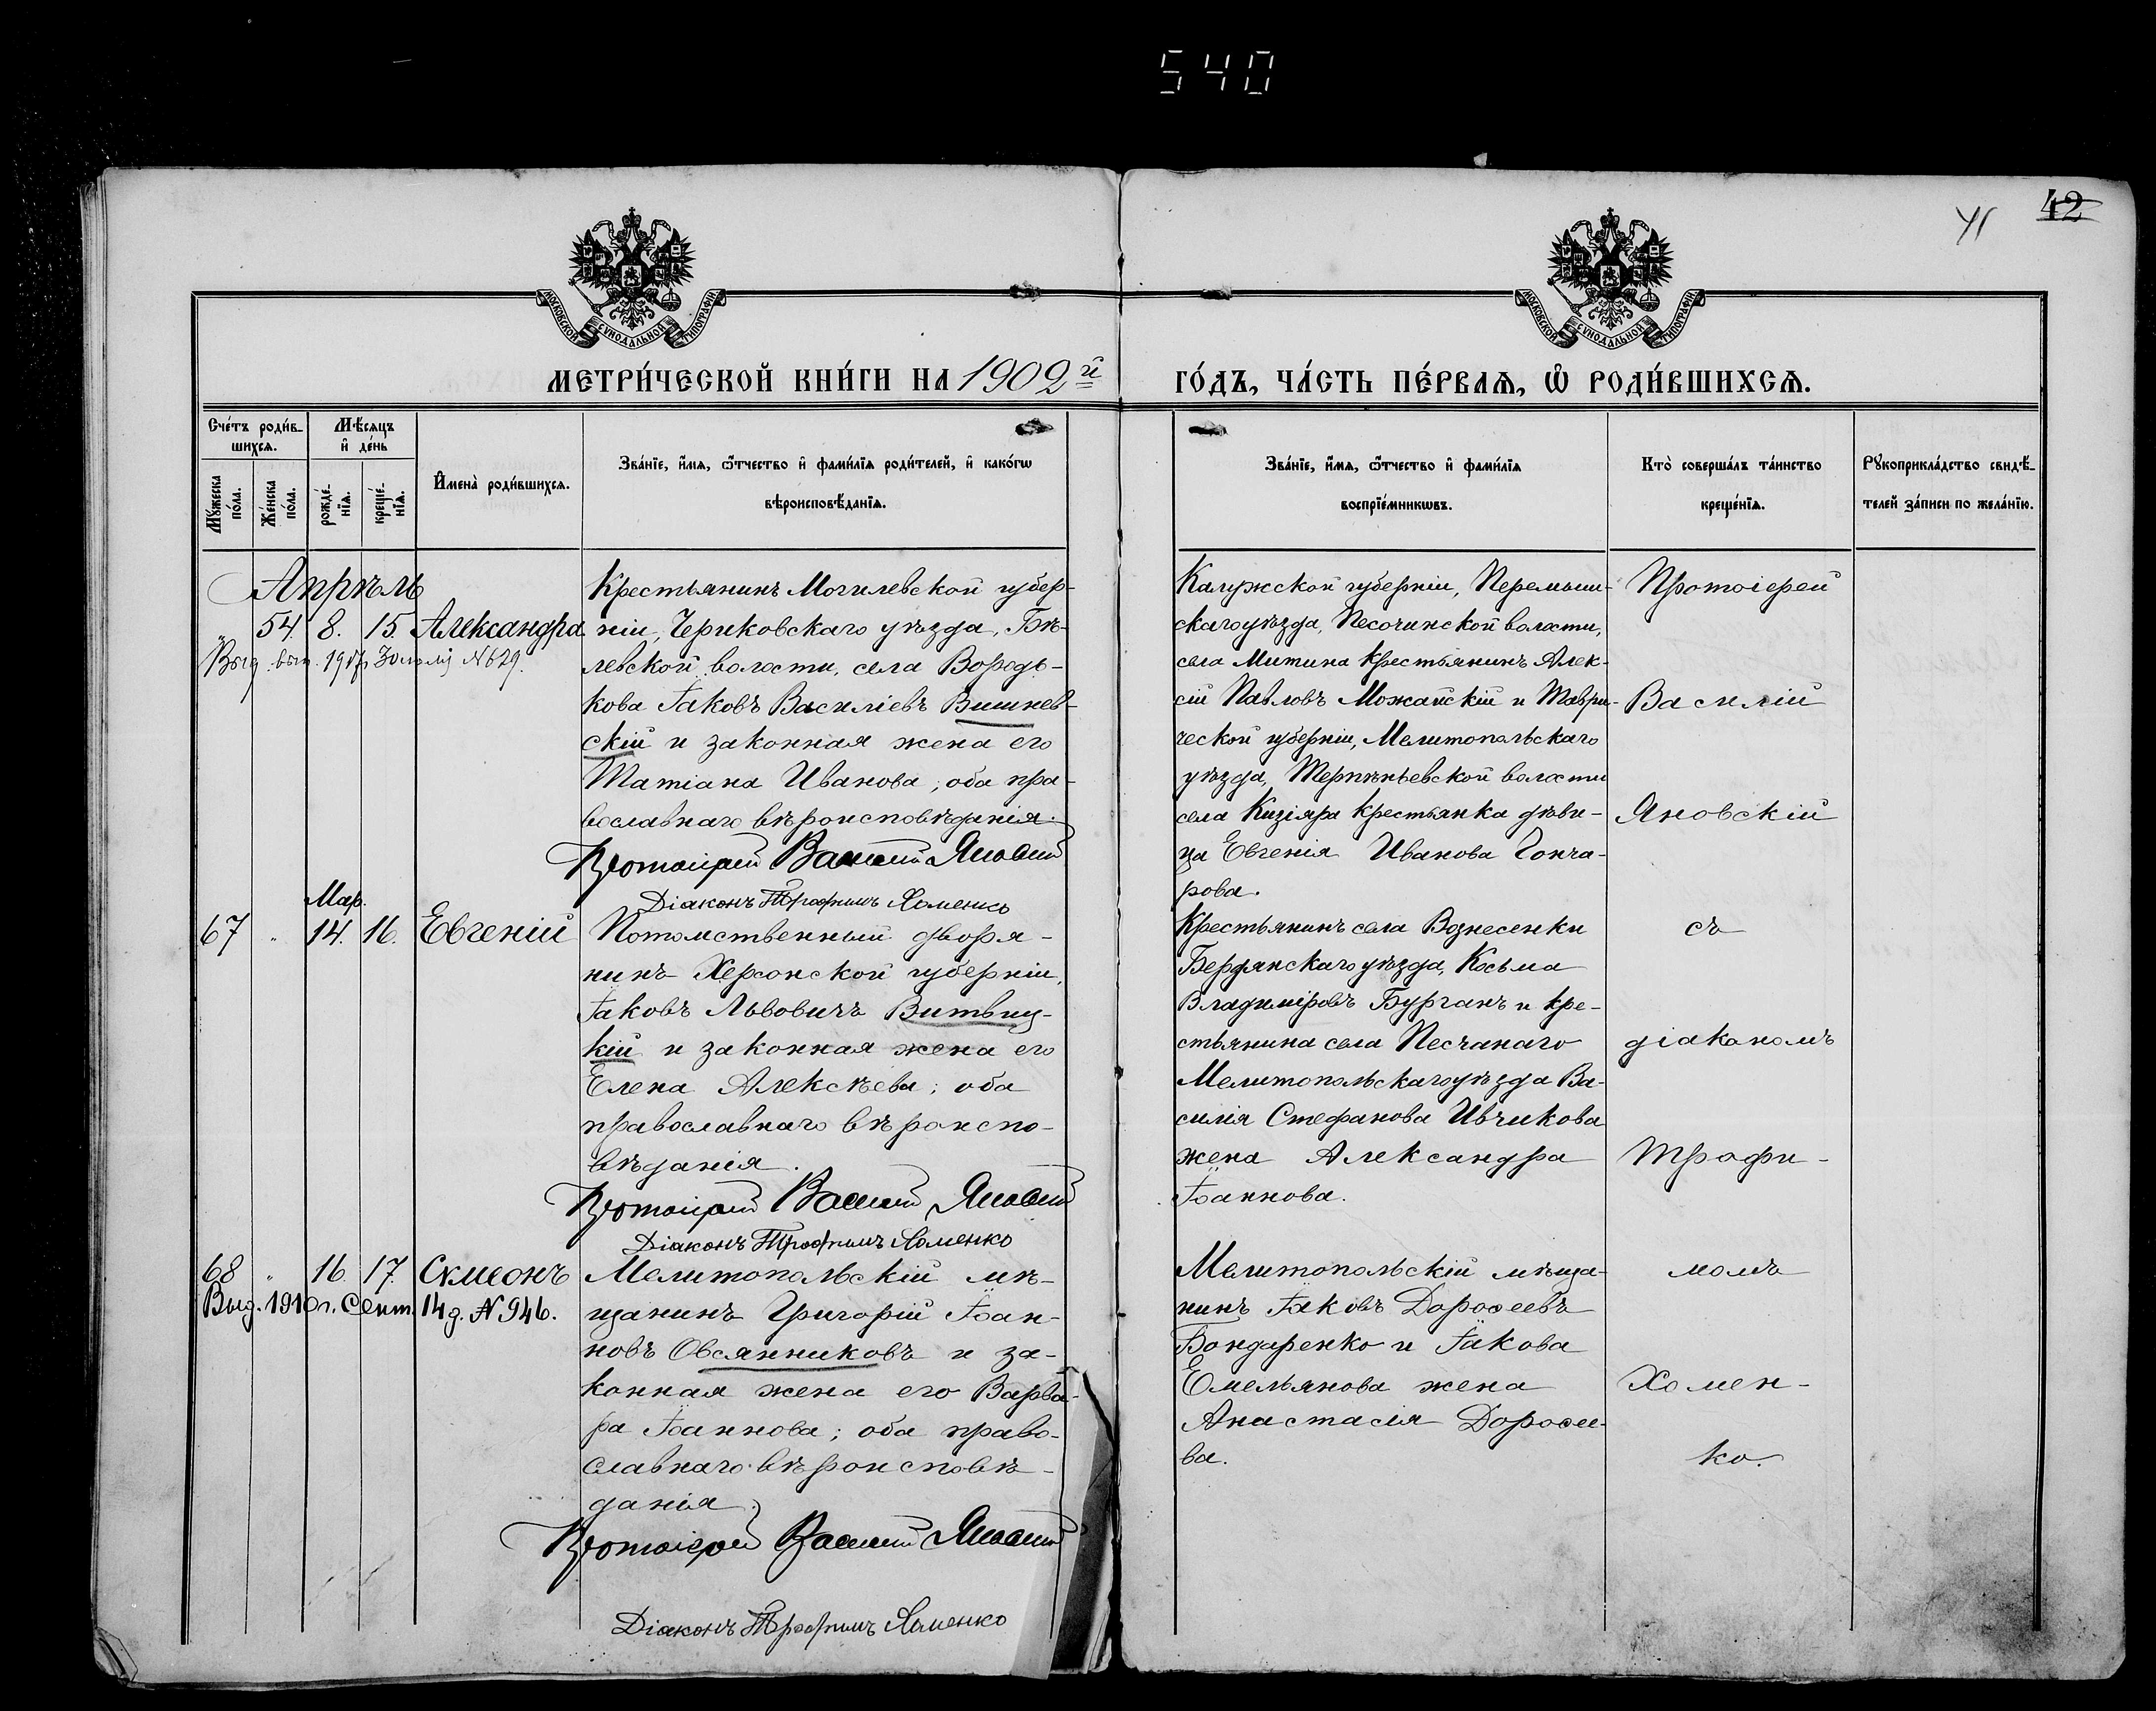 540
41
42
МОСКОВСКОЙ СѴНОДАЛЬНОЙ ТИПОГРАФІИ
МОСКОВСКОЙ СѴНОДАЛЬНОЙ ТИПОГРАФІИ
МЕТРИ́ЧЕСКОЙ КНИ́ГИ НА 1902й
ГО́ДЪ, ЧА́СТЬ ПЕ́РВАѦ, Ѡ҆ РОДИ́ВШИХСѦ.
Сче́тъ роди́в-
шихсѧ.
Мꙋ́жеска
по́ла.
Же́нска
по́ла.
Мѣ́сѧцъ
и҆ де́нь
рожде́-
нїѧ.
креще́-
нїѧ.
И҆мена̀ роди́вшихсѧ.
Зва́нїе, и҆́мѧ, ѻ҆́тчество и҆ фами́лїѧ роди́телей, и҆ како́гѡ
вѣроисповѣ́данїѧ.
Зва́нїе, и҆́мѧ, ѻ҆́тчество и҆ фами́лїѧ
воспрїе́мникѡвъ.
Кто̀ соверша́лъ та́инство
креще́нїѧ.
Рꙋкоприкла́дство свидѣ́-
телей за́писи по жела́нїю.
Апрѣль
„ 54. 8. 15. Александра
Выд. вып. 1917г. 30 іюля №629.
Крестьянинъ Могилевской губер-
ніи, Чериковскаго уѣзда, Бѣ-
левской волости, села Вородь-
кова Іаковъ Василіевъ Вишнев-
скій и законная жена его
Татіана Иванова; оба пра-
вославнаго вѣроисповѣданія.
Протоіерей Василій Яновскій
Діаконъ Трофимъ Хоменко
Калужской губерніи, Перемыш-
скаго уѣзда, Песочинской волости,
села Митина крестьянинъ Алек-
сій Павловъ Можайскій и Таври-
ческой губерніи, Мелитопольскаго
уѣзда, Терпѣньевской волости
села Кизіяра крестьянка дѣви-
ца Евгенія Иванова Гонча-
рова.
Протоіерей
Василій
Яновскій
Мар.
67 „ 14. 16. Евгеній
Потомственный дворя-
нинъ Херсонской губерніи,
Іаковъ Львовичъ Витвиц-
кій и законная жена его
Елена Алексѣева; оба
православнаго вѣроиспо-
вѣданія.
Протоіерей Василій Яновскій
Діаконъ Трофимъ Хоменко
Крестьянинъ села Вознесенки
Бердянскаго уѣзда, Косьма
Владиміровъ Бурганъ и кре-
стьянина села Песчанаго
Мелитопольскаго уѣзда Ва-
силія Стефанова Ивчикова
жена Александра
Іоаннова.
съ
діакономъ
Трофи-
68 „ 16. 17. Сѵмеонъ
Выд. 1910 г. Сент. 14 д. №946.
Мелитопольскій мѣ-
щанинъ Григорій Іоан-
новъ Овсянниковъ и за-
конная жена его Варва-
ра Іоаннова; оба право-
славнаго вѣроисповѣ-
данія.
Протоіерей Василій Яновскій
Діаконъ Трофимъ Хоменко
Мелитопольскій мѣща-
нинъ Іаковъ Дороѳеевъ
Бондаренко и Іакова
Емельянова жена
Анастасія Дороѳее-
ва.
момъ
Хомен-
ко.